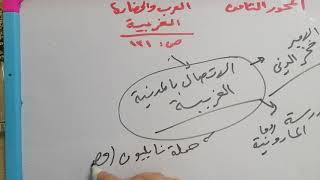 المحور الثامن
العرب والحضارة
الغربية
ص: ١٣١
الاتصال بالمدنية
الغربية
الامير
فخر الديني
مدرسة روما
المارونية
حملة نابليون (مص